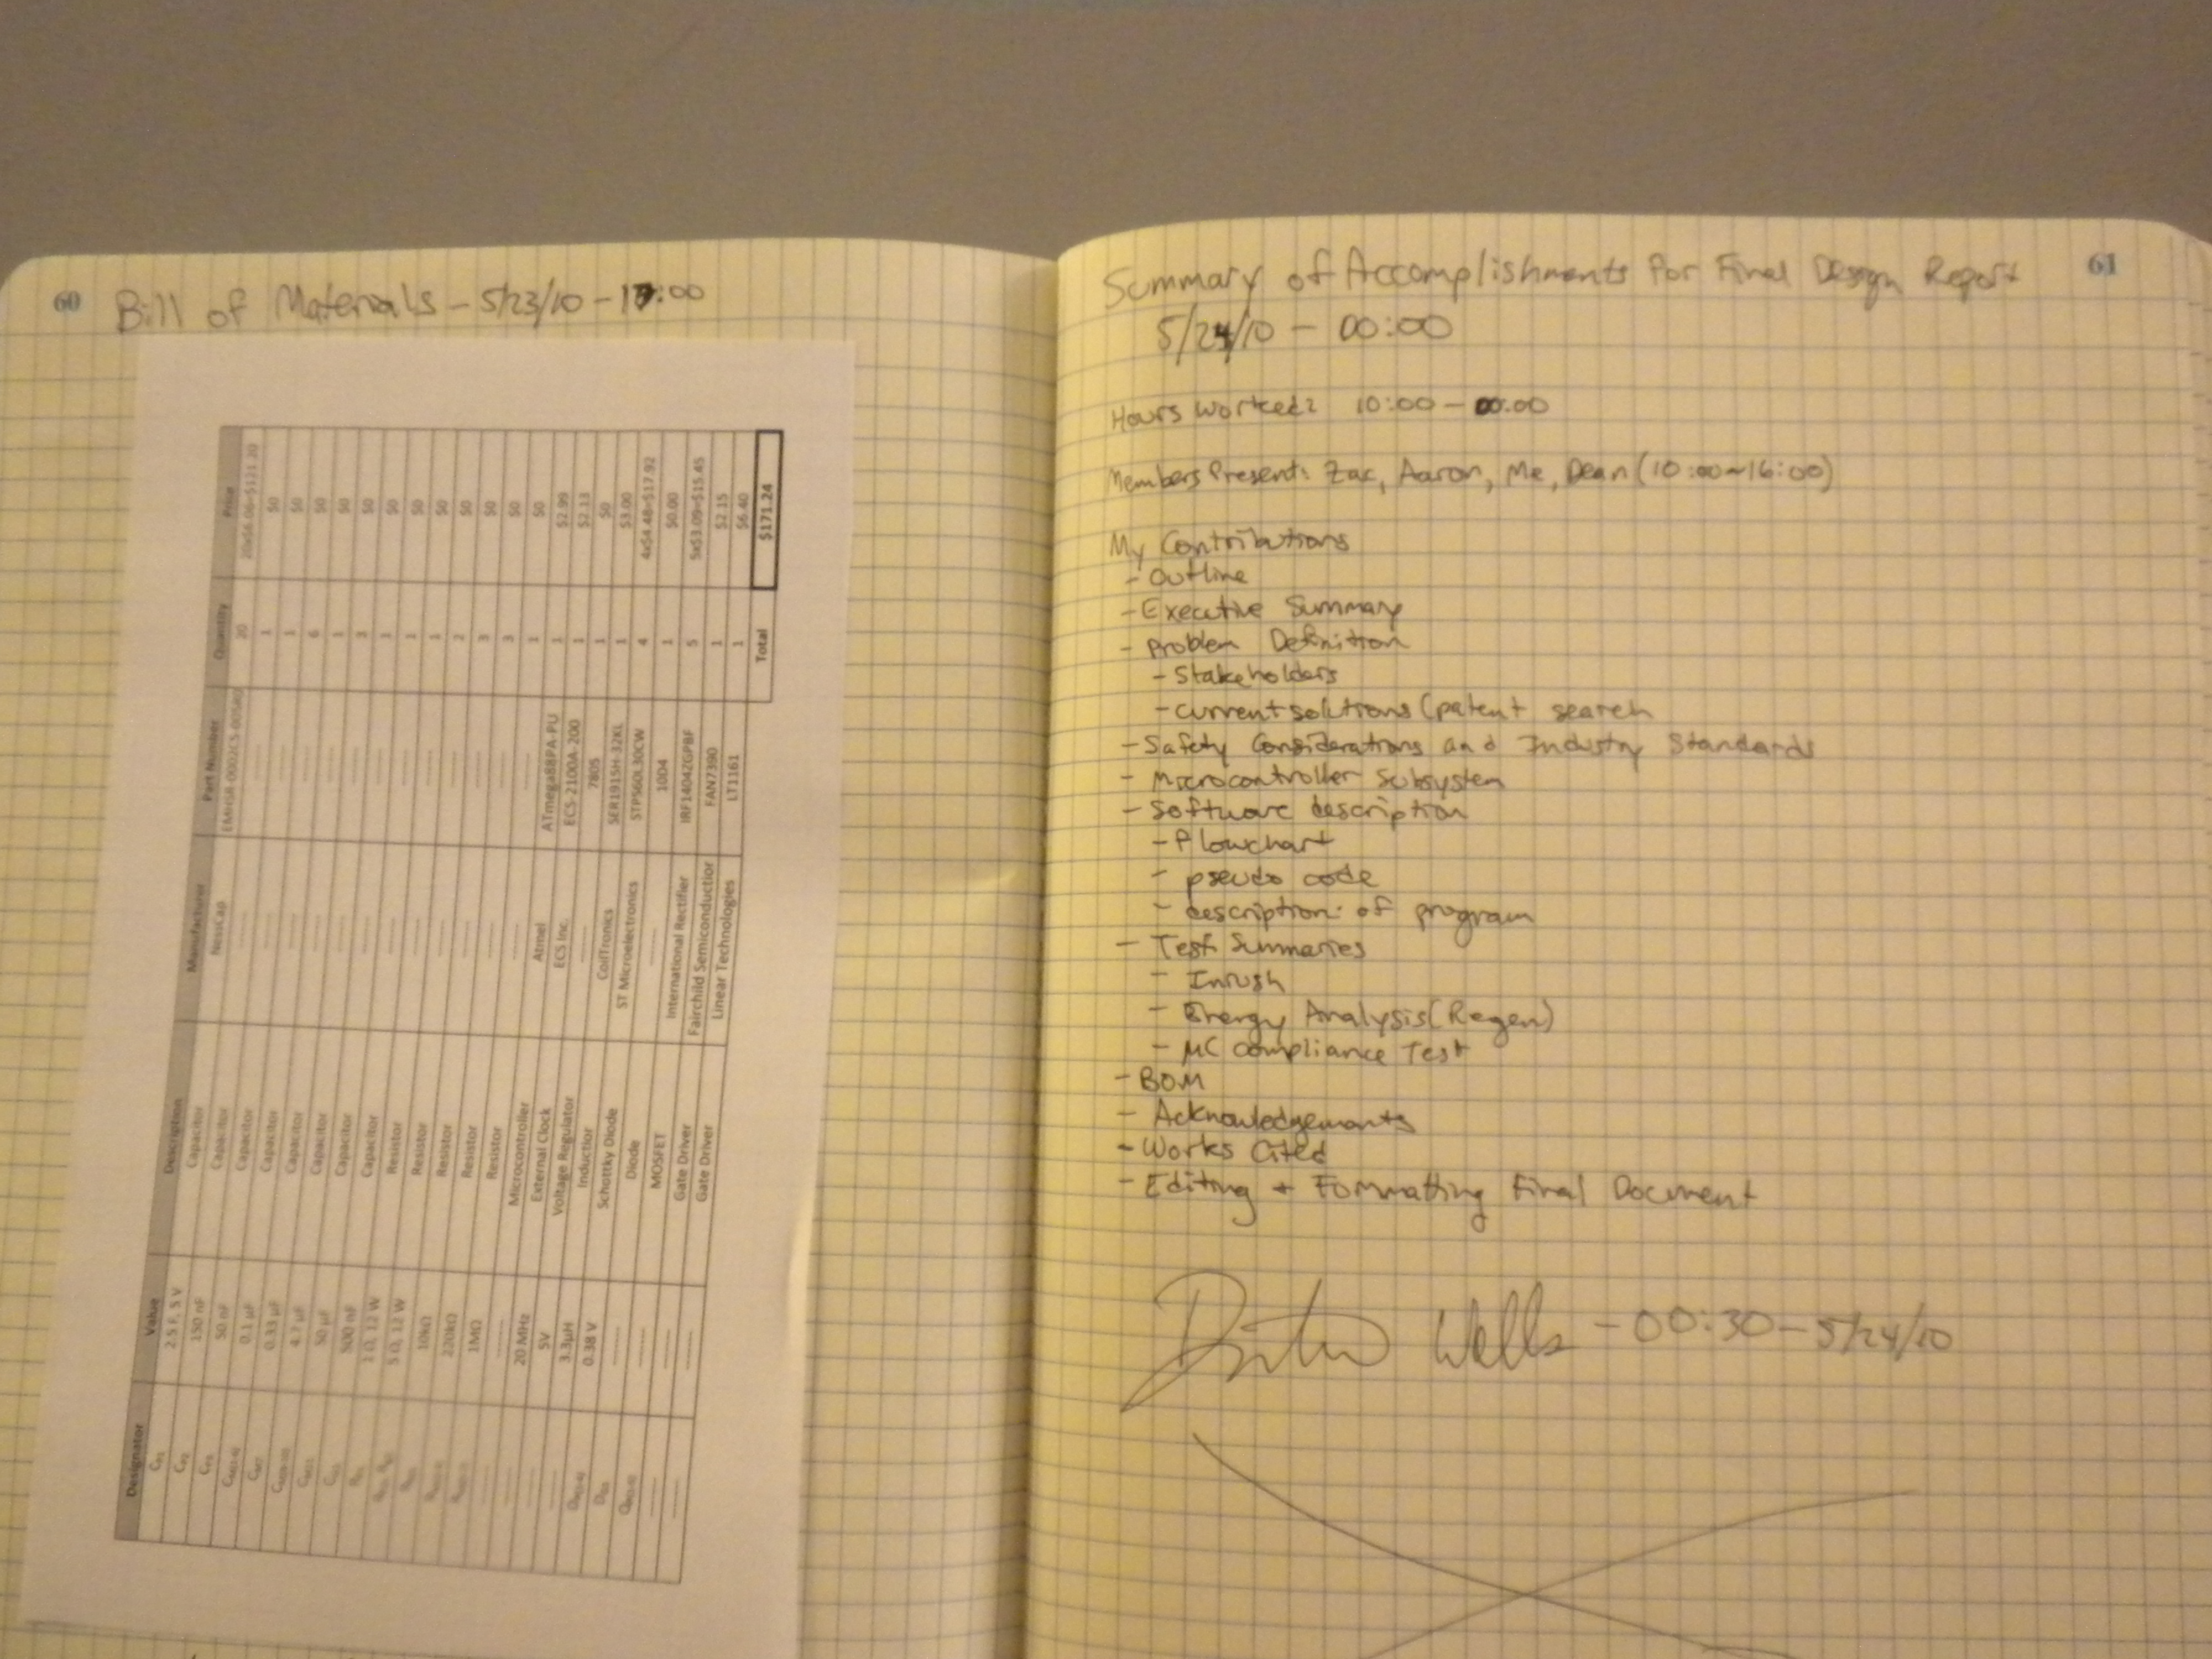 60
Bill of Materials - 5/23/10 - 17:00
Designator Value Description Manufacturer Part Number Quantity Price
2.5 F, 5 V Capacitor NessCap EMHSR-0002C5-005R0 20 20x$6.06=$121.20
150 nF Capacitor -------- -------- 1 $0
50 nF Capacitor -------- -------- 1 $0
0.1 µF Capacitor -------- -------- 6 $0
0.33 µF Capacitor -------- -------- 1 $0
4.7 µF Capacitor -------- -------- 3 $0
50 µF Capacitor -------- -------- 1 $0
500 nF Capacitor -------- -------- 1 $0
1 Ω, 12 W Resistor -------- -------- 1 $0
5 Ω, 12 W Resistor -------- -------- 2 $0
10kΩ Resistor -------- -------- 3 $0
220kΩ Resistor -------- -------- 3 $0
1MΩ Resistor -------- -------- 1 $0
-------- -------- Microcontroller Atmel ATmega88PA-PU 1 $2.99
-------- 20 MHz External Clock ECS Inc. ECS-2100A-200 1 $2.13
-------- 5V Voltage Regulator -------- 7805 1 $0
-------- 3.3µH Inductior CoilTronics SER1915H-32KL 1 $3.00
0.38 V Schottky Diode ST Microelectronics STPS60L30CW 4 4x$4.48=$17.92
-------- Diode -------- 10D4 1 $0.00
-------- MOSFET International Rectifier IRF1404ZGPBF 5 5x$3.09=$15.45
-------- -------- Gate Driver Fairchild Semiconductior FAN7390 1 $2.15
-------- -------- Gate Driver Linear Technologies LT1161 1 $6.40
Total $171.24
61
Summary of Accomplishments for Final Design Report
5/24/10 - 00:00
Hours Worked: 10:00 - 00:00
Members Present: Zac, Aaron, Me, Dean (10:00~16:00)
My Contributions
- Outline
- Executive Summary
- Problem Definition
- Stakeholders
- current solutions (patent search
- Safety Considerations and Industry Standards
- Microcontroller Subsystem
- Software description
- Flowchart
- pseudo code
- description of program
- Test Summaries
- Inrush
- Energy Analysis (Regen)
- MC Compliance Test
- BOM
- Acknowledgements
- Works Cited
- Editing + Formatting Final Document
Wells - 00:30 - 5/24/10